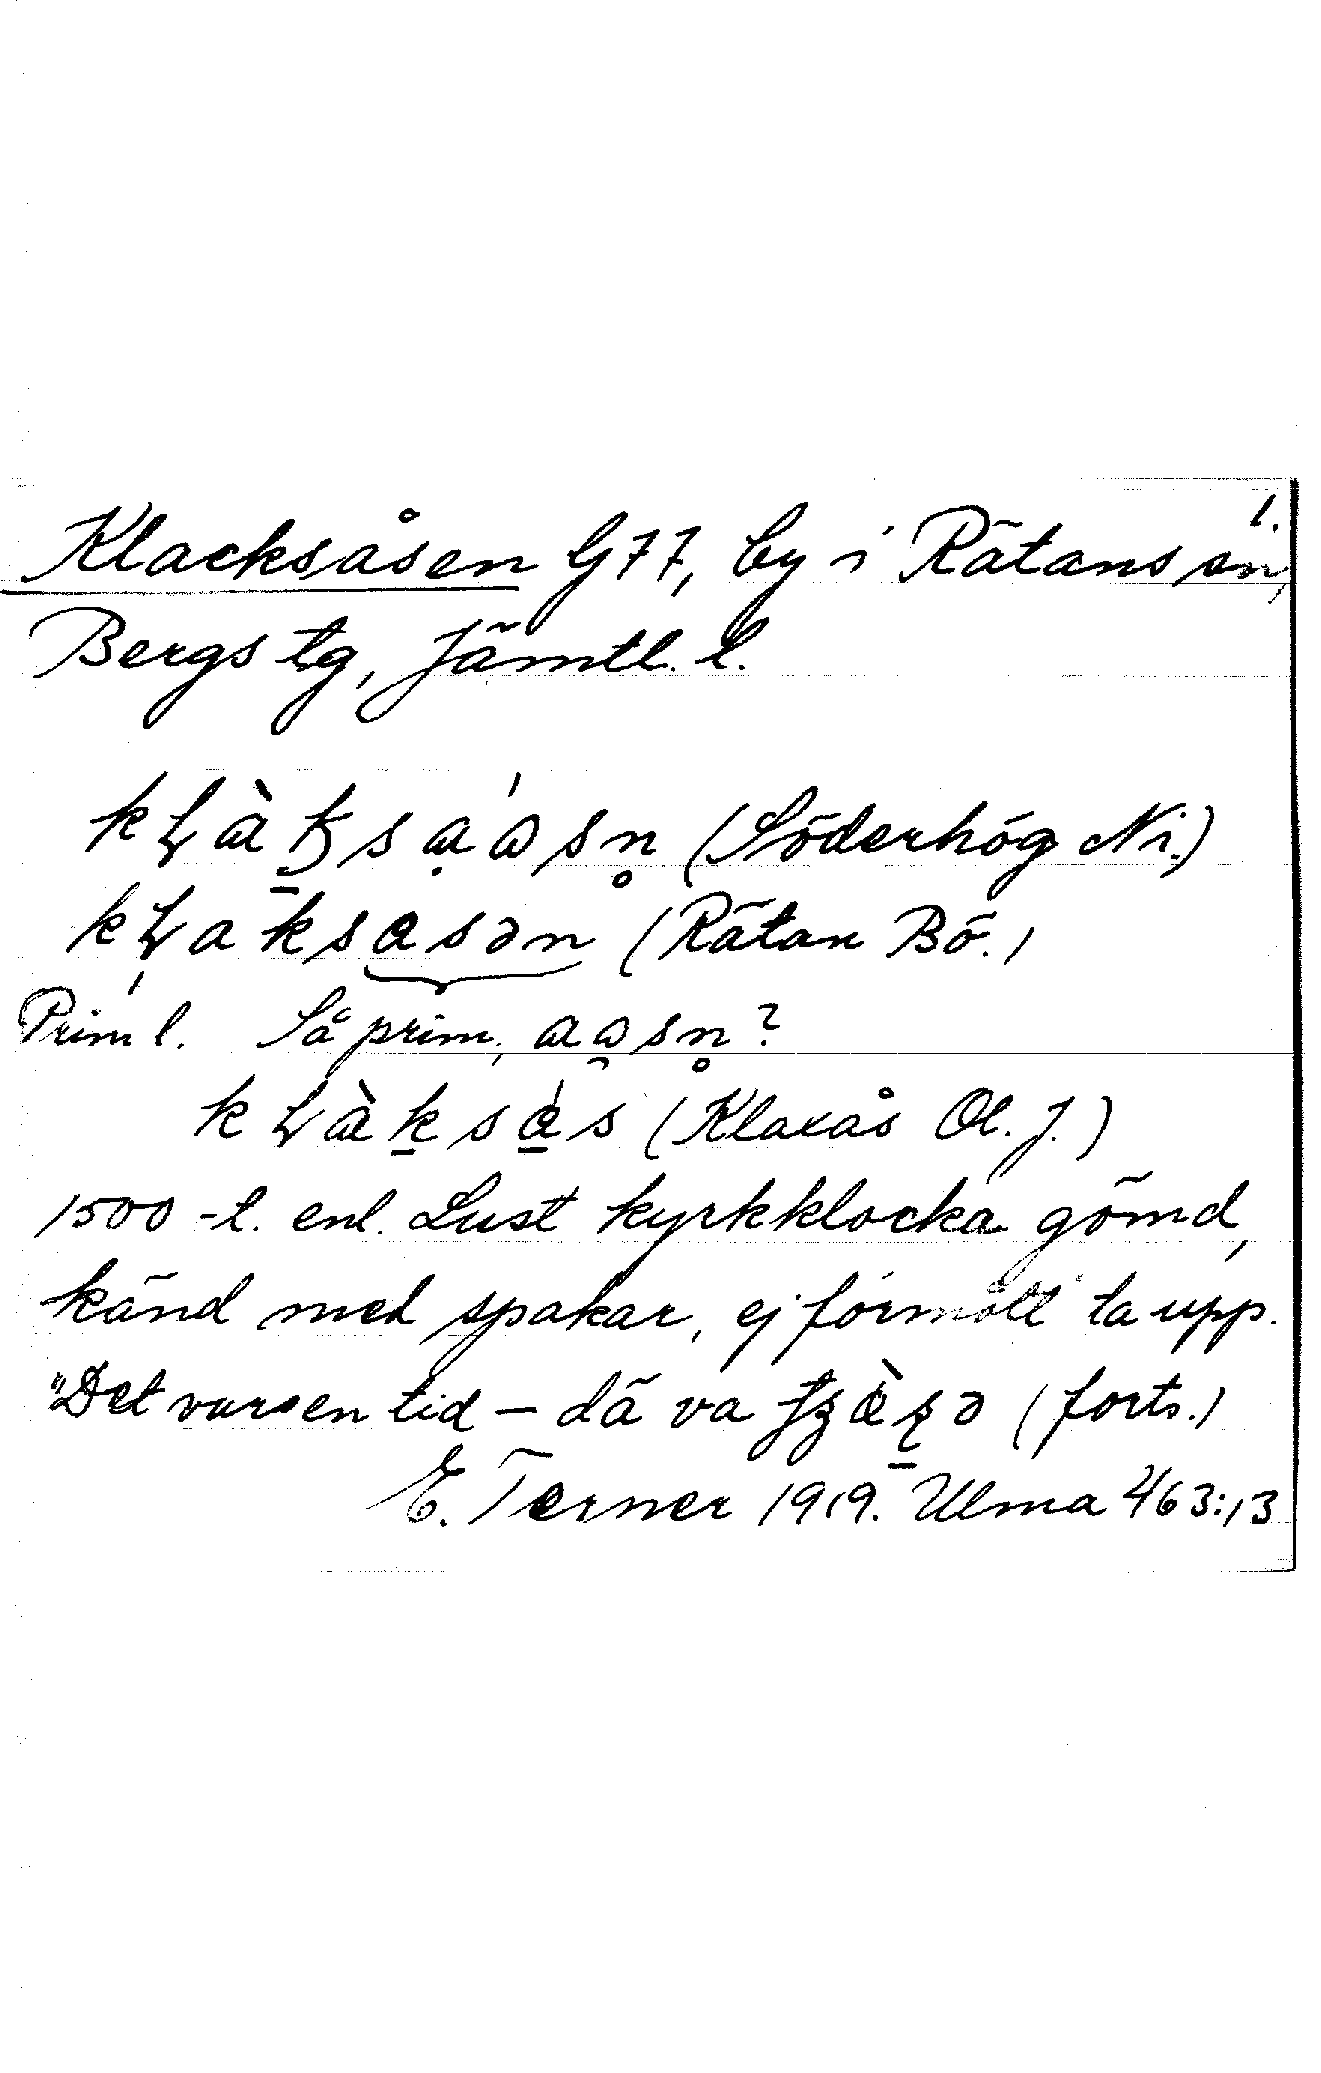 1.
Klacksåsen G 77, by i Rätans sn,
Bergs tg, Jämtl. l.
(Söderhög Ni.)
(Rätan Bö.)
Prim l. Så prim.
(Klaxås Ol. J.)
1500-t. enl. Lust kyrkklocka gömd,
känd med spakar, ej förmått ta upp.
"Det var en tid – dä va (forts.)
E. Terner 1919. Ulma 463:13